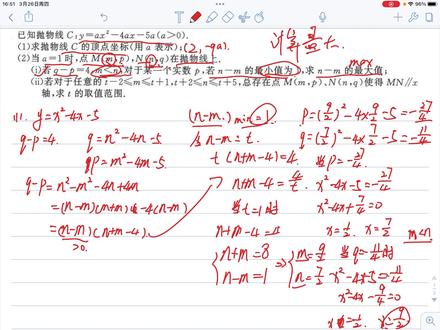 16:51 3月26日周四
96%
已知抛物线 C:y=ax²-4ax-5a(a>0).
(1)求抛物线 C 的顶点坐标(用 a 表示); (2, -9a).
计算量大.
(2)当 a=1 时,点 M(m,p), N(n,q)在抛物线上.
max
(i)若 q-p=4, m<n, 对于某一个实数 p,若 n-m 的最小值为 1, 求 n-m 的最大值;
(ii)若对于任意的 t-2≤m≤t+1,t+2≤n≤t+5,总存在点 M(m,p)、N(n,q)使得 MN∥x
轴,求 t 的取值范围.
(1). y=x²-4x-5
q-p=4. q=n²-4n-5
p=m²-4m-5.
q-p=n²-m²-4n+4m
=(n-m)(n+m)-4(n-m)
=(n-m)(n+m-4).
>0.
(n-m) min=1.
令 n-m=t.
t(n+m-4)=4.
n+m-4=4/t.
当 t=1 时
n+m-4=4
{ n+m=8
n-m=1
⇒ { m=9/2
n=7/2
p=(9/2)²-4×9/2-5=-27/4
q=(7/2)²-4×7/2-5=-27/4
当 p=-27/4.
x²-4x-5=-27/4
x²-4x+7/4=0
x=1/2. x=7/2. m<n
当 q=-11/4 时
x²-4x-5=-11/4
x²-4x-9/4=0
x=-1/2. x=9/2.